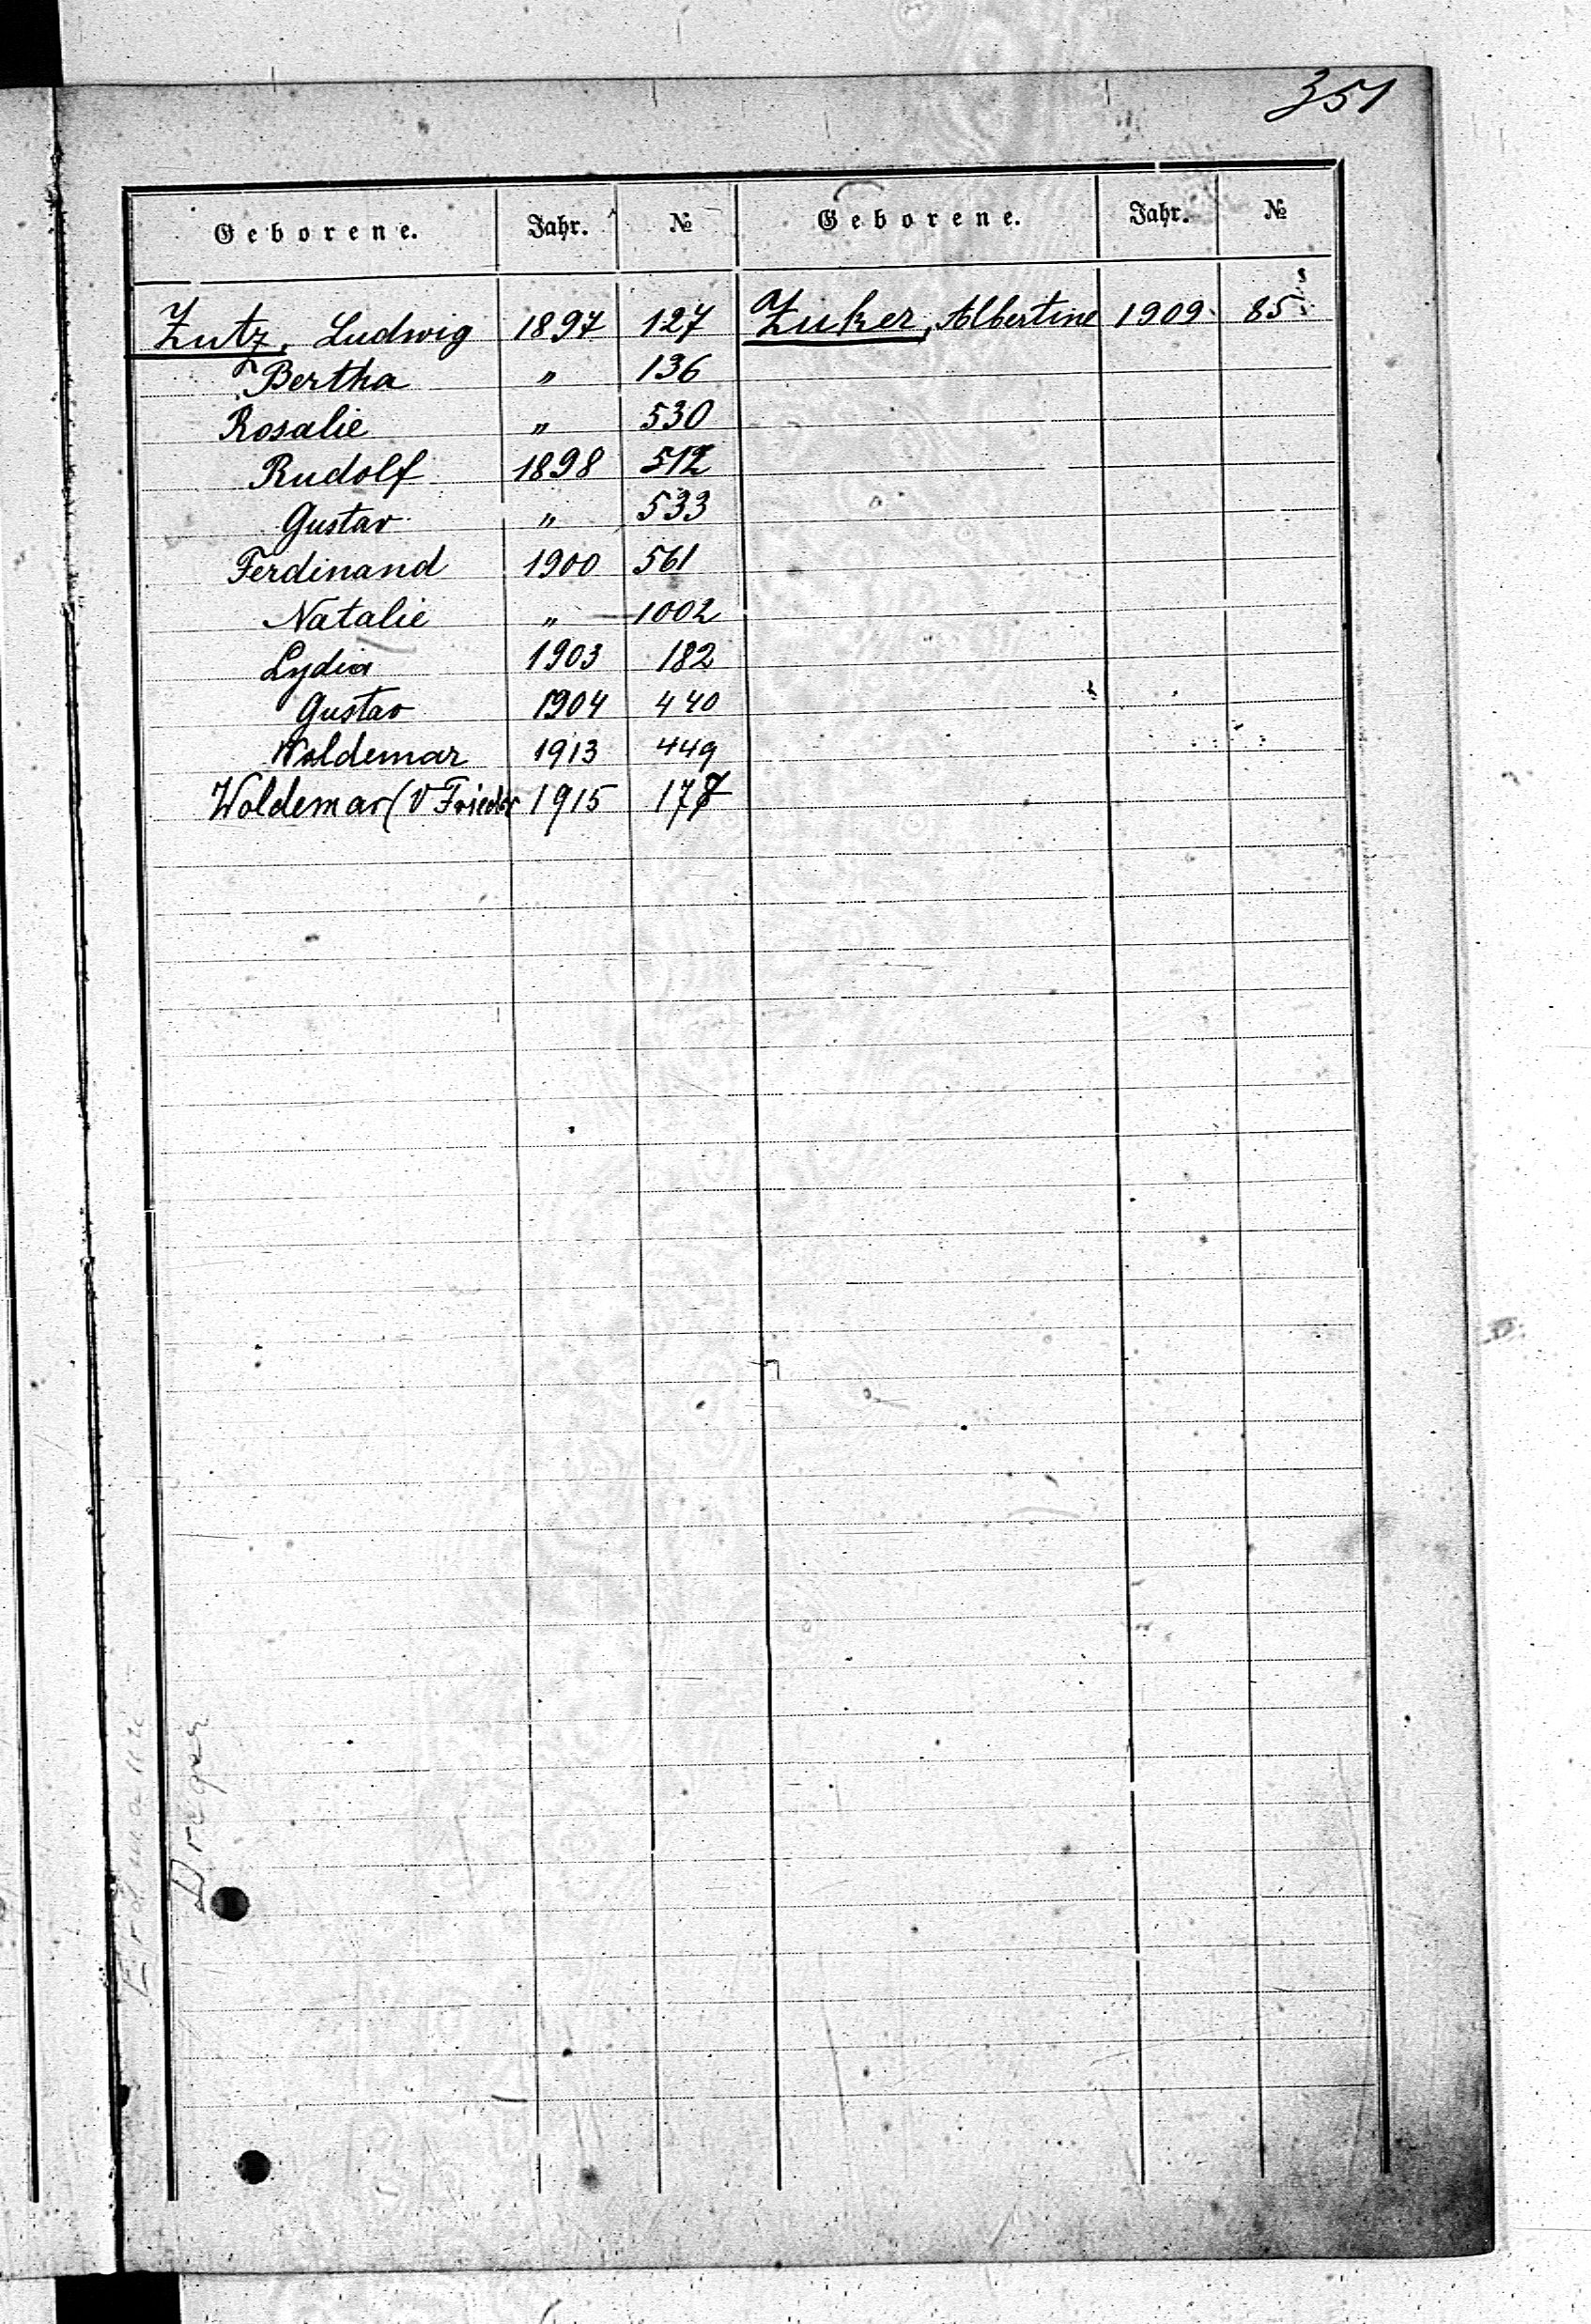 351
Geborene. Jahr. № Geborene. Jahr. №
Zutz, Ludwig 1897 127 Zuker, Albertine 1909 85
Bertha " 136
Rosalie " 530
Rudolf 1898 512
Gustav " 533
Ferdinand 1900 561
Natalie " 1002
Lydia 1903 182
Gustav 1904 440
Woldemar 1913 449
Woldemar (V Friedr 1915 177